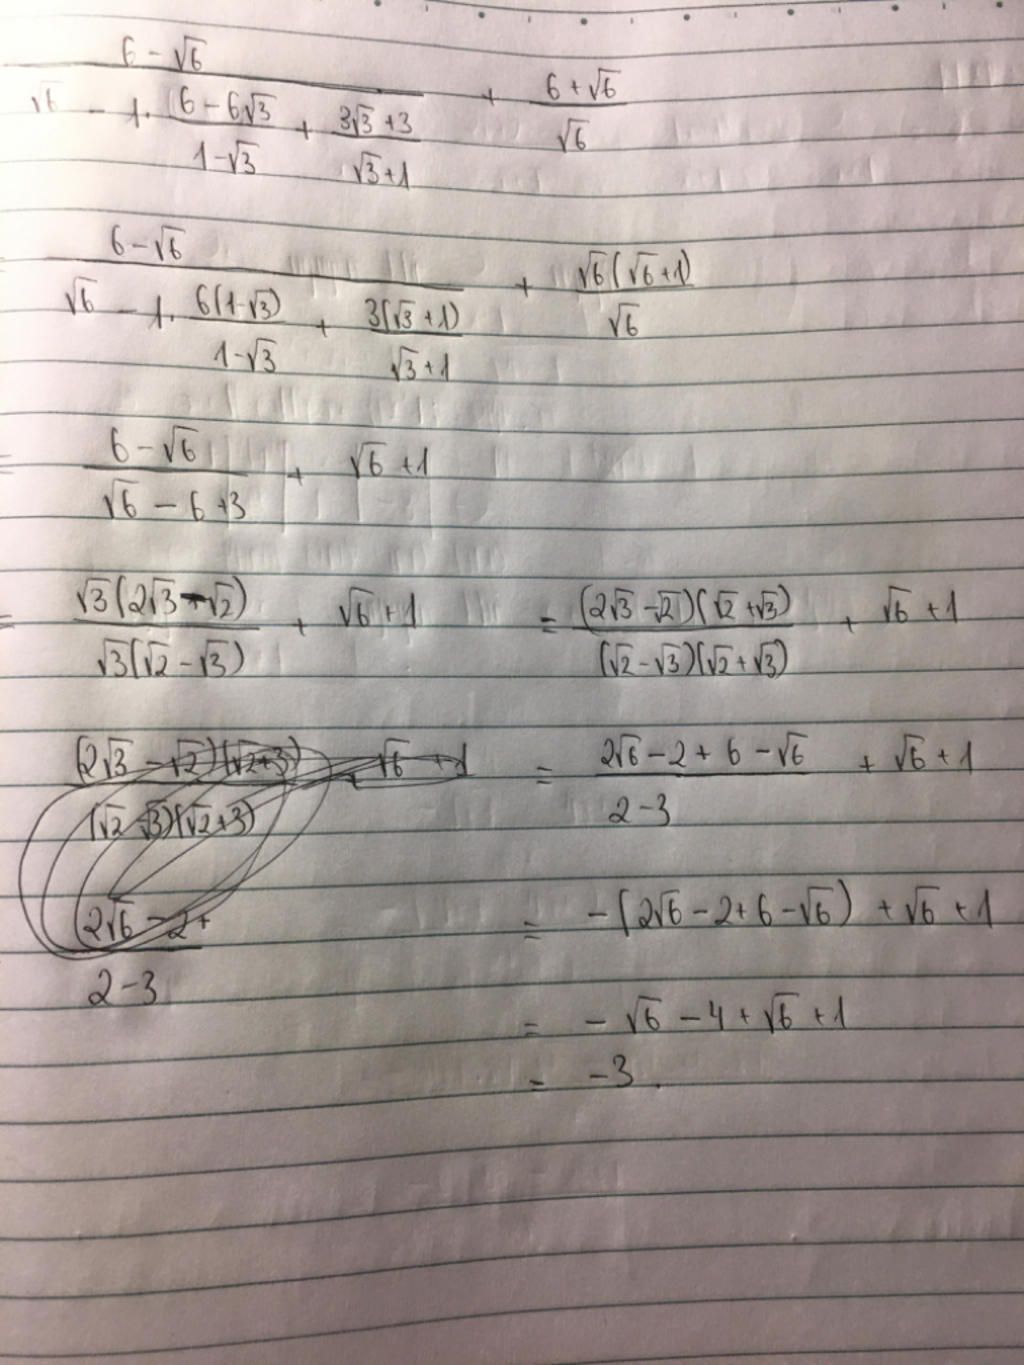 6 - √6
√6 - 1. (6 - 6√3)/(1-√3) + (3√3 + 3)/(√3 + 1) + (6 + √6)/√6
6 - √6
√6 - 1. 6(1-√3)/(1-√3) + 3(√3 + 1)/(√3 + 1) + √6(√6 + 1)/√6
= (6 - √6)/(√6 - 6 + 3) + √6 + 1
= √3(2√3 - √2)/√3(√2 - √3) + √6 + 1 = (2√3 - √2)(√2 + √3)/(√2 - √3)(√2 + √3) + √6 + 1
(2√3 - √2)(√2+3)/(√2 √3)(√2+3) + √6 + 1 = (2√6 - 2 + 6 - √6)/(2 - 3) + √6 + 1
(2√6 - 2 +)/(2 - 3) = -(2√6 - 2 + 6 - √6) + √6 + 1
= - √6 - 4 + √6 + 1
= - 3.